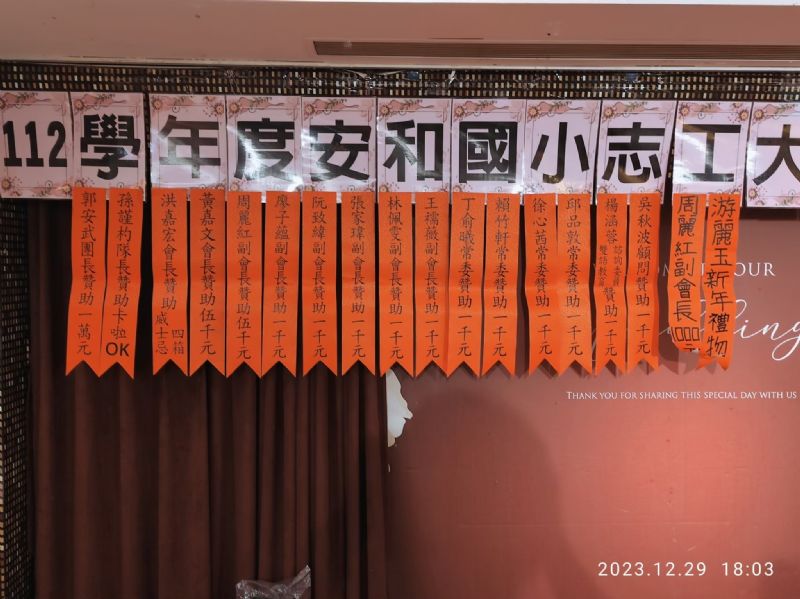 112學年度安和國小志工大
郭安武團長贊助一萬元
孫謹杓隊長贊助卡啦OK
洪嘉宏會長贊助威士忌四箱
黃嘉文會長贊助伍千元
周麗紅副會長贊助伍千元
廖子蘊副會長贊助一千元
阮致緯副會長贊助一千元
張家瑋副會長贊助一千元
林佩雯副會長贊助一千元
王櫹薇副會長贊助一千元
丁俞曦常委贊助一千元
賴竹軒常委贊助一千元
徐心茜常委贊助一千元
邱品敦常委贊助一千元
楊涵蓉諮詢委員雙語教育贊助一千元
吳秋波顧問贊助一千元
周麗紅副會長1000元
游麗玉新年禮物
OUR
THANK YOU FOR SHARING THIS SPECIAL DAY WITH US
2023.12.29 18:03